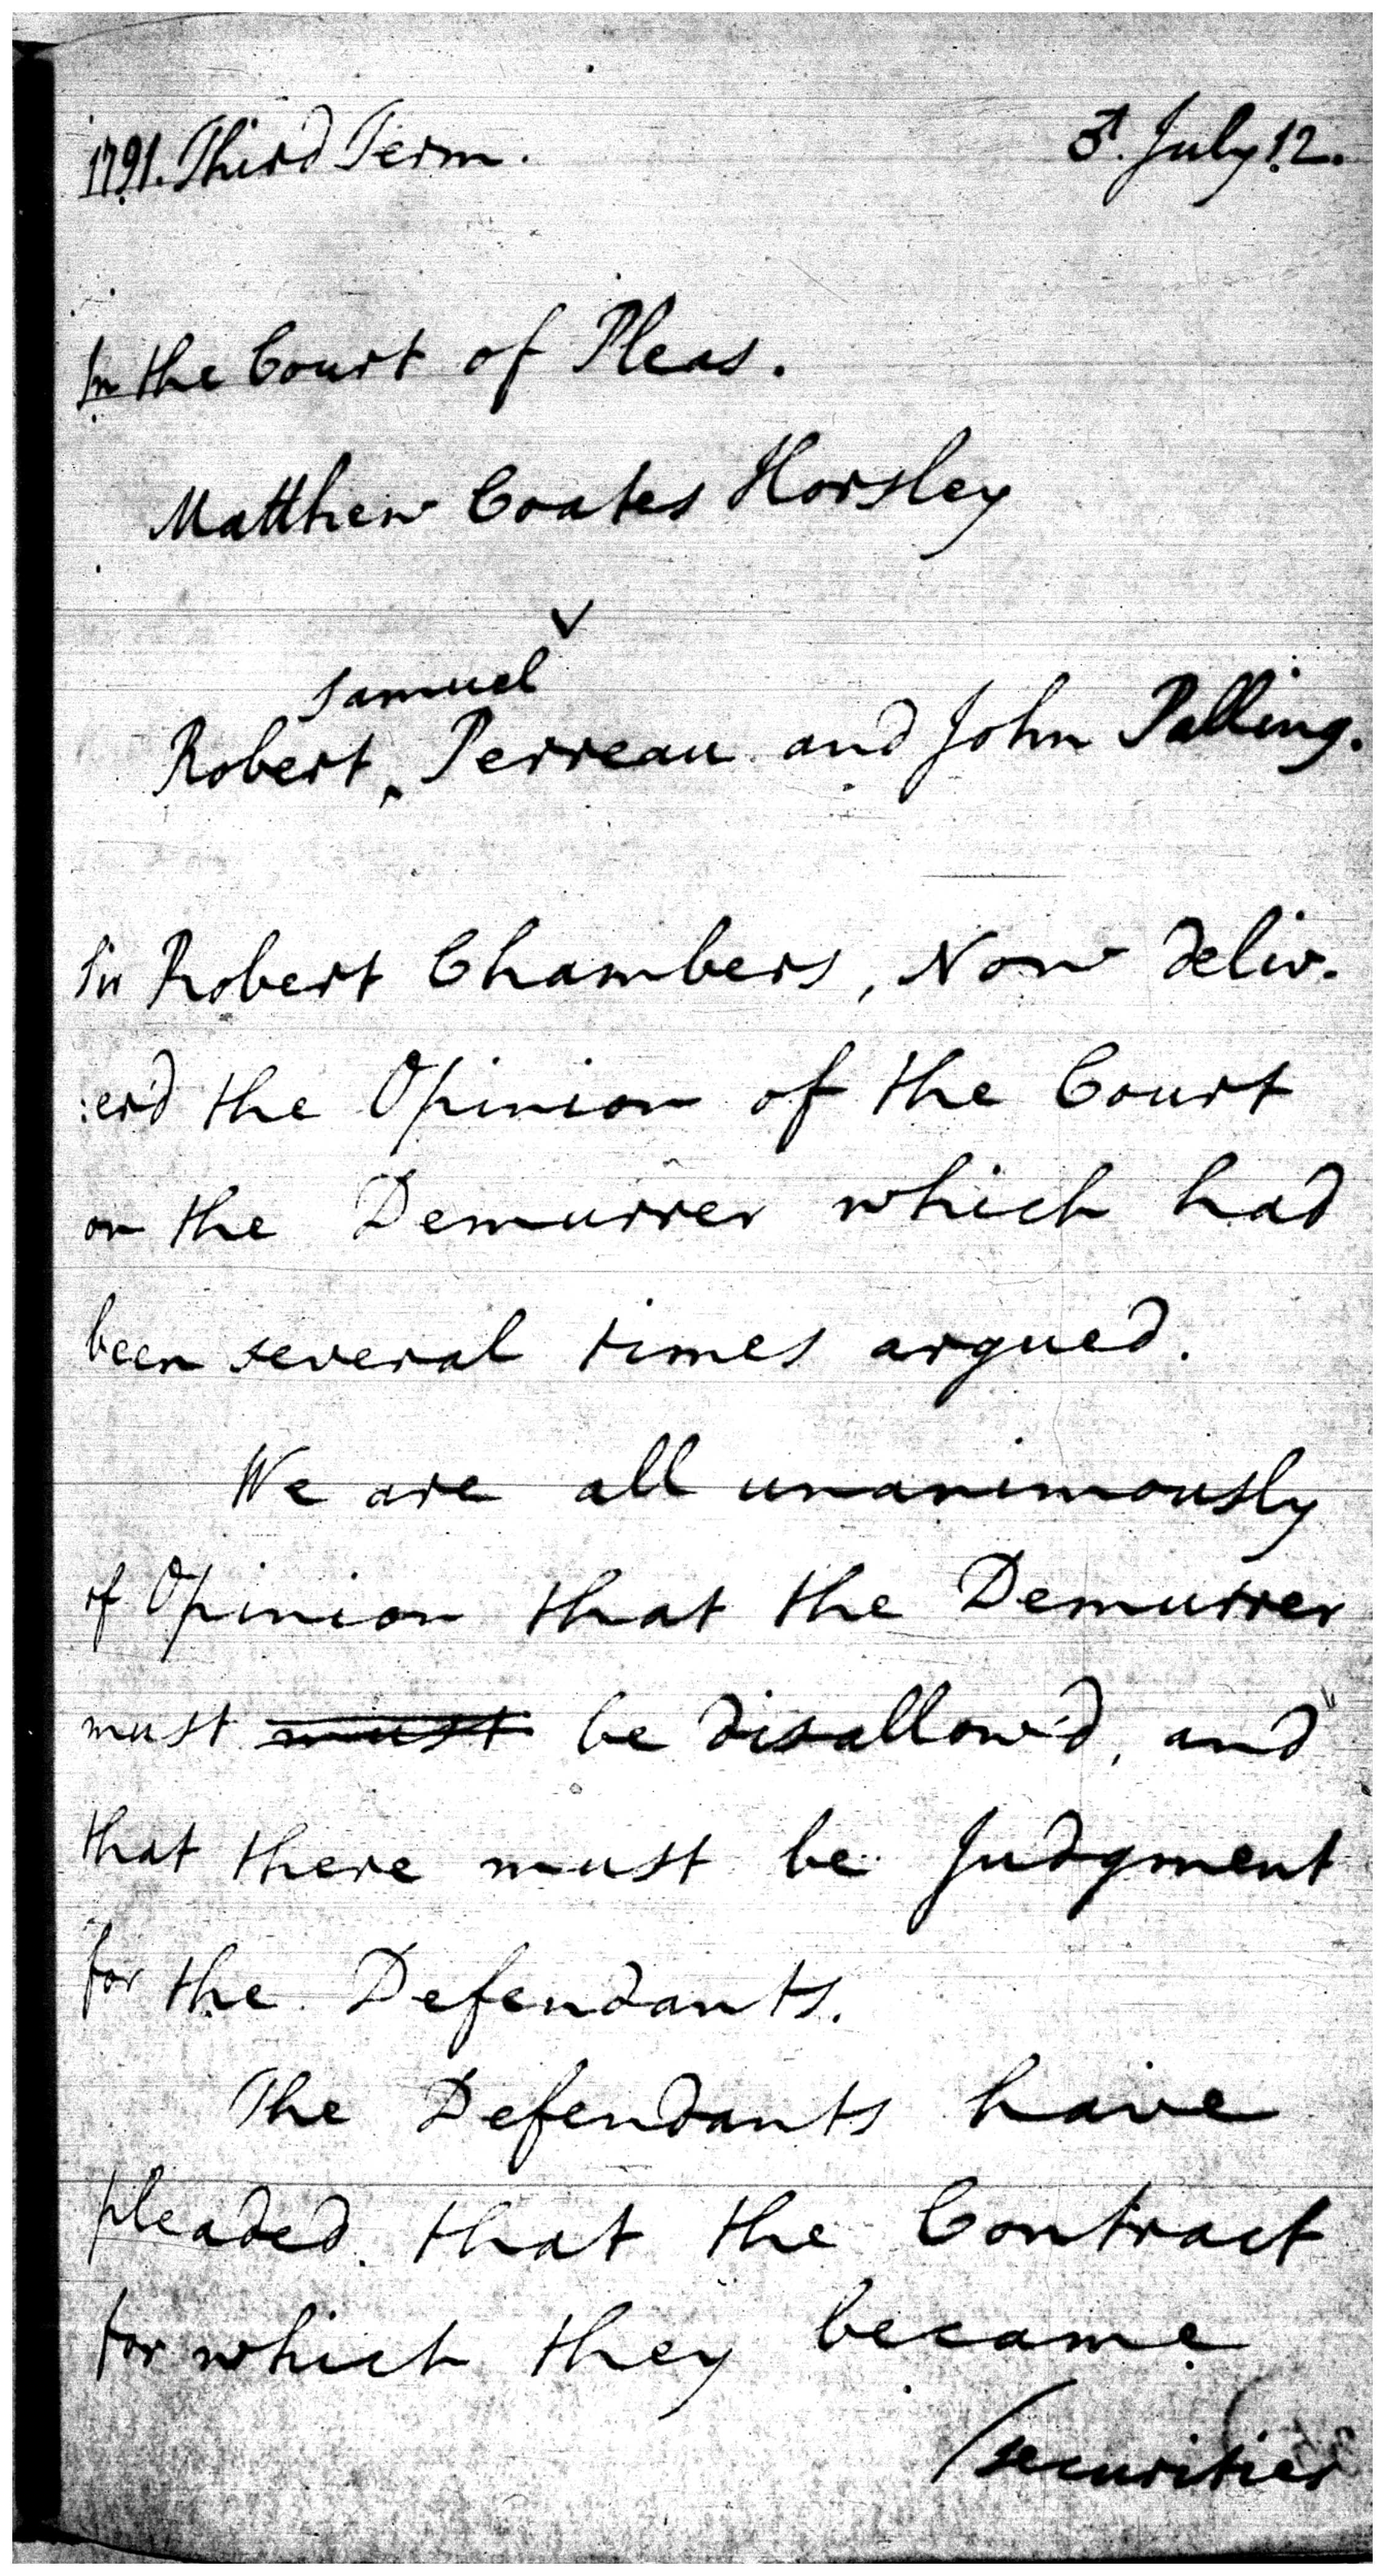 1791. Third Term. ♂. July 12.
In the Court of Pleas.
Matthew Coates Horsley
v
Samuel
Robert ‸ Perreau and John Palling.
Sir Robert Chambers, Now deliv-
:er'd the Opinion of the Court
on the Demurrer which had
been several times argued.
We are all unanimously
of Opinion that the Demurrer
must must be disallow'd, and
that there must be Judgment
for the Defendants.
The Defendants have
pleaded that the Contract
for which they became
/securities